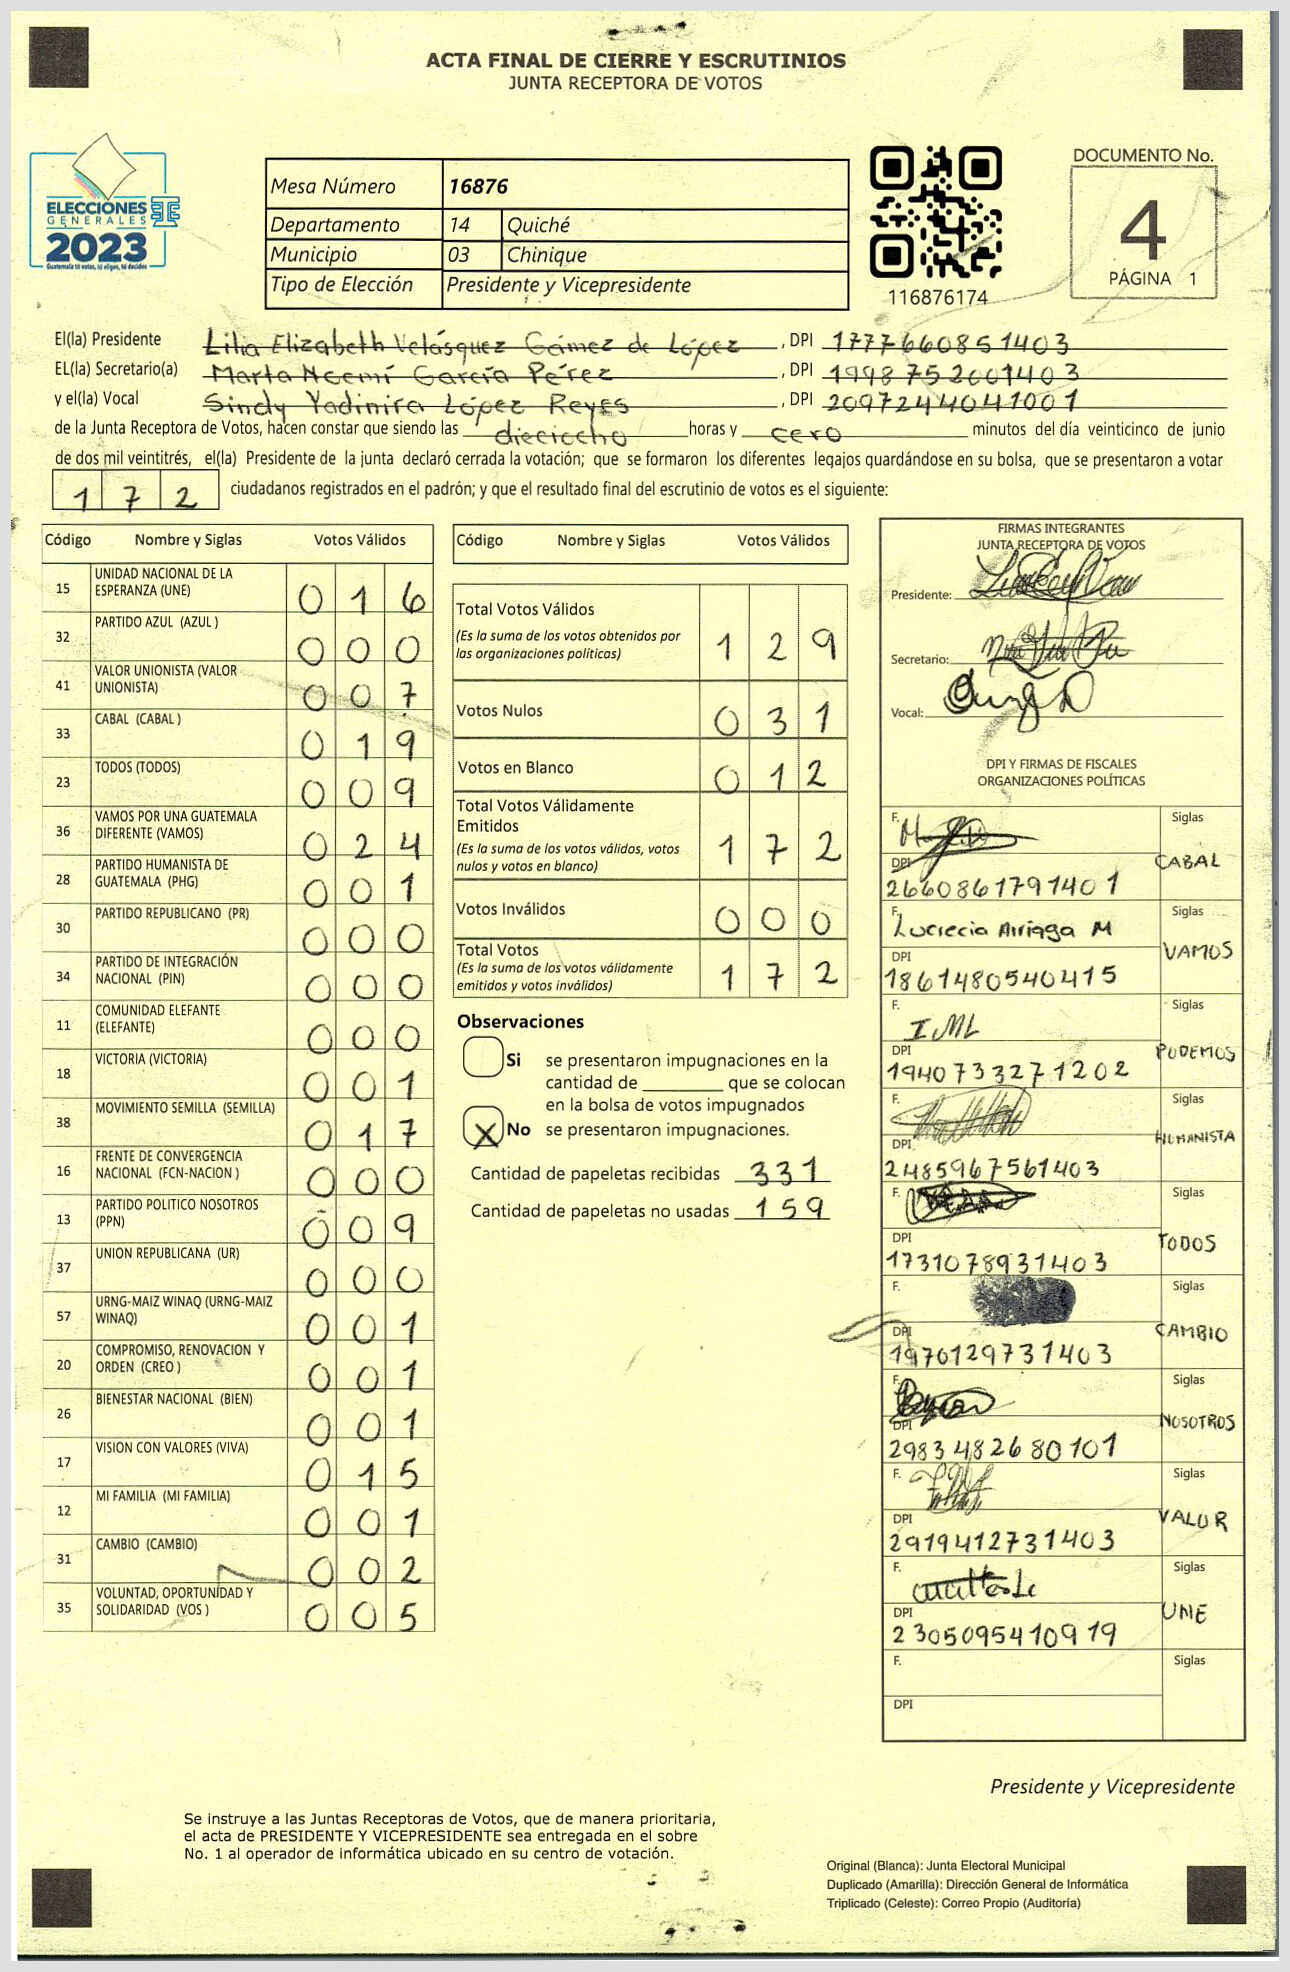 ACTA FINAL DE CIERRE Y ESCRUTINIOS
JUNTA RECEPTORA DE VOTOS
ELECCIONES
GENERALES
2023
Guatemala tú votas, tú eliges, tú decides
Mesa Número 16876
Departamento 14 Quiché
Municipio 03 Chinique
Tipo de Elección Presidente y Vicepresidente
116876174
DOCUMENTO No.
4
PÁGINA 1
El(la) Presidente Lilia Elizabeth Velásquez Gámez de López , DPI 1777660851403
EL(la) Secretario(a) Marta Noemí García Pérez , DPI 1998752001403
y el(la) Vocal Sindy Yadinira López Reyes , DPI 2097244041001
de la Junta Receptora de Votos, hacen constar que siendo las dieciocho horas y cero minutos del día veinticinco de junio
de dos mil veintitrés, el(la) Presidente de la junta declaró cerrada la votación; que se formaron los diferentes legajos guardándose en su bolsa, que se presentaron a votar
172 ciudadanos registrados en el padrón; y que el resultado final del escrutinio de votos es el siguiente:
Código Nombre y Siglas Votos Válidos
15 UNIDAD NACIONAL DE LA ESPERANZA (UNE) 016
32 PARTIDO AZUL (AZUL ) 000
41 VALOR UNIONISTA (VALOR UNIONISTA) 007
33 CABAL (CABAL ) 019
23 TODOS (TODOS) 009
36 VAMOS POR UNA GUATEMALA DIFERENTE (VAMOS) 024
28 PARTIDO HUMANISTA DE GUATEMALA (PHG) 001
30 PARTIDO REPUBLICANO (PR) 000
34 PARTIDO DE INTEGRACIÓN NACIONAL (PIN) 000
11 COMUNIDAD ELEFANTE (ELEFANTE) 000
18 VICTORIA (VICTORIA) 001
38 MOVIMIENTO SEMILLA (SEMILLA) 017
16 FRENTE DE CONVERGENCIA NACIONAL (FCN-NACION ) 000
13 PARTIDO POLITICO NOSOTROS (PPN) 009
37 UNION REPUBLICANA (UR) 000
57 URNG-MAIZ WINAQ (URNG-MAIZ WINAQ) 001
20 COMPROMISO, RENOVACION Y ORDEN (CREO ) 001
26 BIENESTAR NACIONAL (BIEN) 001
17 VISION CON VALORES (VIVA) 015
12 MI FAMILIA (MI FAMILIA) 001
31 CAMBIO (CAMBIO) 002
35 VOLUNTAD, OPORTUNIDAD Y SOLIDARIDAD (VOS ) 005
Código Nombre y Siglas Votos Válidos
Total Votos Válidos 129
(Es la suma de los votos obtenidos por
las organizaciones políticas)
Votos Nulos 031
Votos en Blanco 012
Total Votos Válidamente
Emitidos 172
(Es la suma de los votos válidos, votos
nulos y votos en blanco)
Votos Inválidos 000
Total Votos 172
(Es la suma de los votos válidamente
emitidos y votos inválidos)
Observaciones
Si se presentaron impugnaciones en la
cantidad de ________ que se colocan
en la bolsa de votos impugnados
X No se presentaron impugnaciones.
Cantidad de papeletas recibidas 331
Cantidad de papeletas no usadas 159
FIRMAS INTEGRANTES
JUNTA RECEPTORA DE VOTOS
Presidente:
Secretario:
Vocal:
DPI Y FIRMAS DE FISCALES
ORGANIZACIONES POLÍTICAS
F. Siglas
DPI CABAL
2660861791401
F. Lucrecia Arriaga M Siglas
DPI VAMOS
1861480540415
F. IML Siglas
DPI PODEMOS
1940733271202
F. Siglas
DPI HUMANISTA
2485967561403
F. Siglas
DPI TODOS
1731078931403
F. Siglas
DPI CAMBIO
1970129731403
F. Siglas
DPI NOSOTROS
2983482680101
F. Siglas
DPI VALOR
2919412731403
F. Siglas
DPI UNE
2305095410919
F. Siglas
DPI
Presidente y Vicepresidente
Se instruye a las Juntas Receptoras de Votos, que de manera prioritaria,
el acta de PRESIDENTE Y VICEPRESIDENTE sea entregada en el sobre
No. 1 al operador de informática ubicado en su centro de votación.
Original (Blanca): Junta Electoral Municipal
Duplicado (Amarilla): Dirección General de Informática
Triplicado (Celeste): Correo Propio (Auditoría)